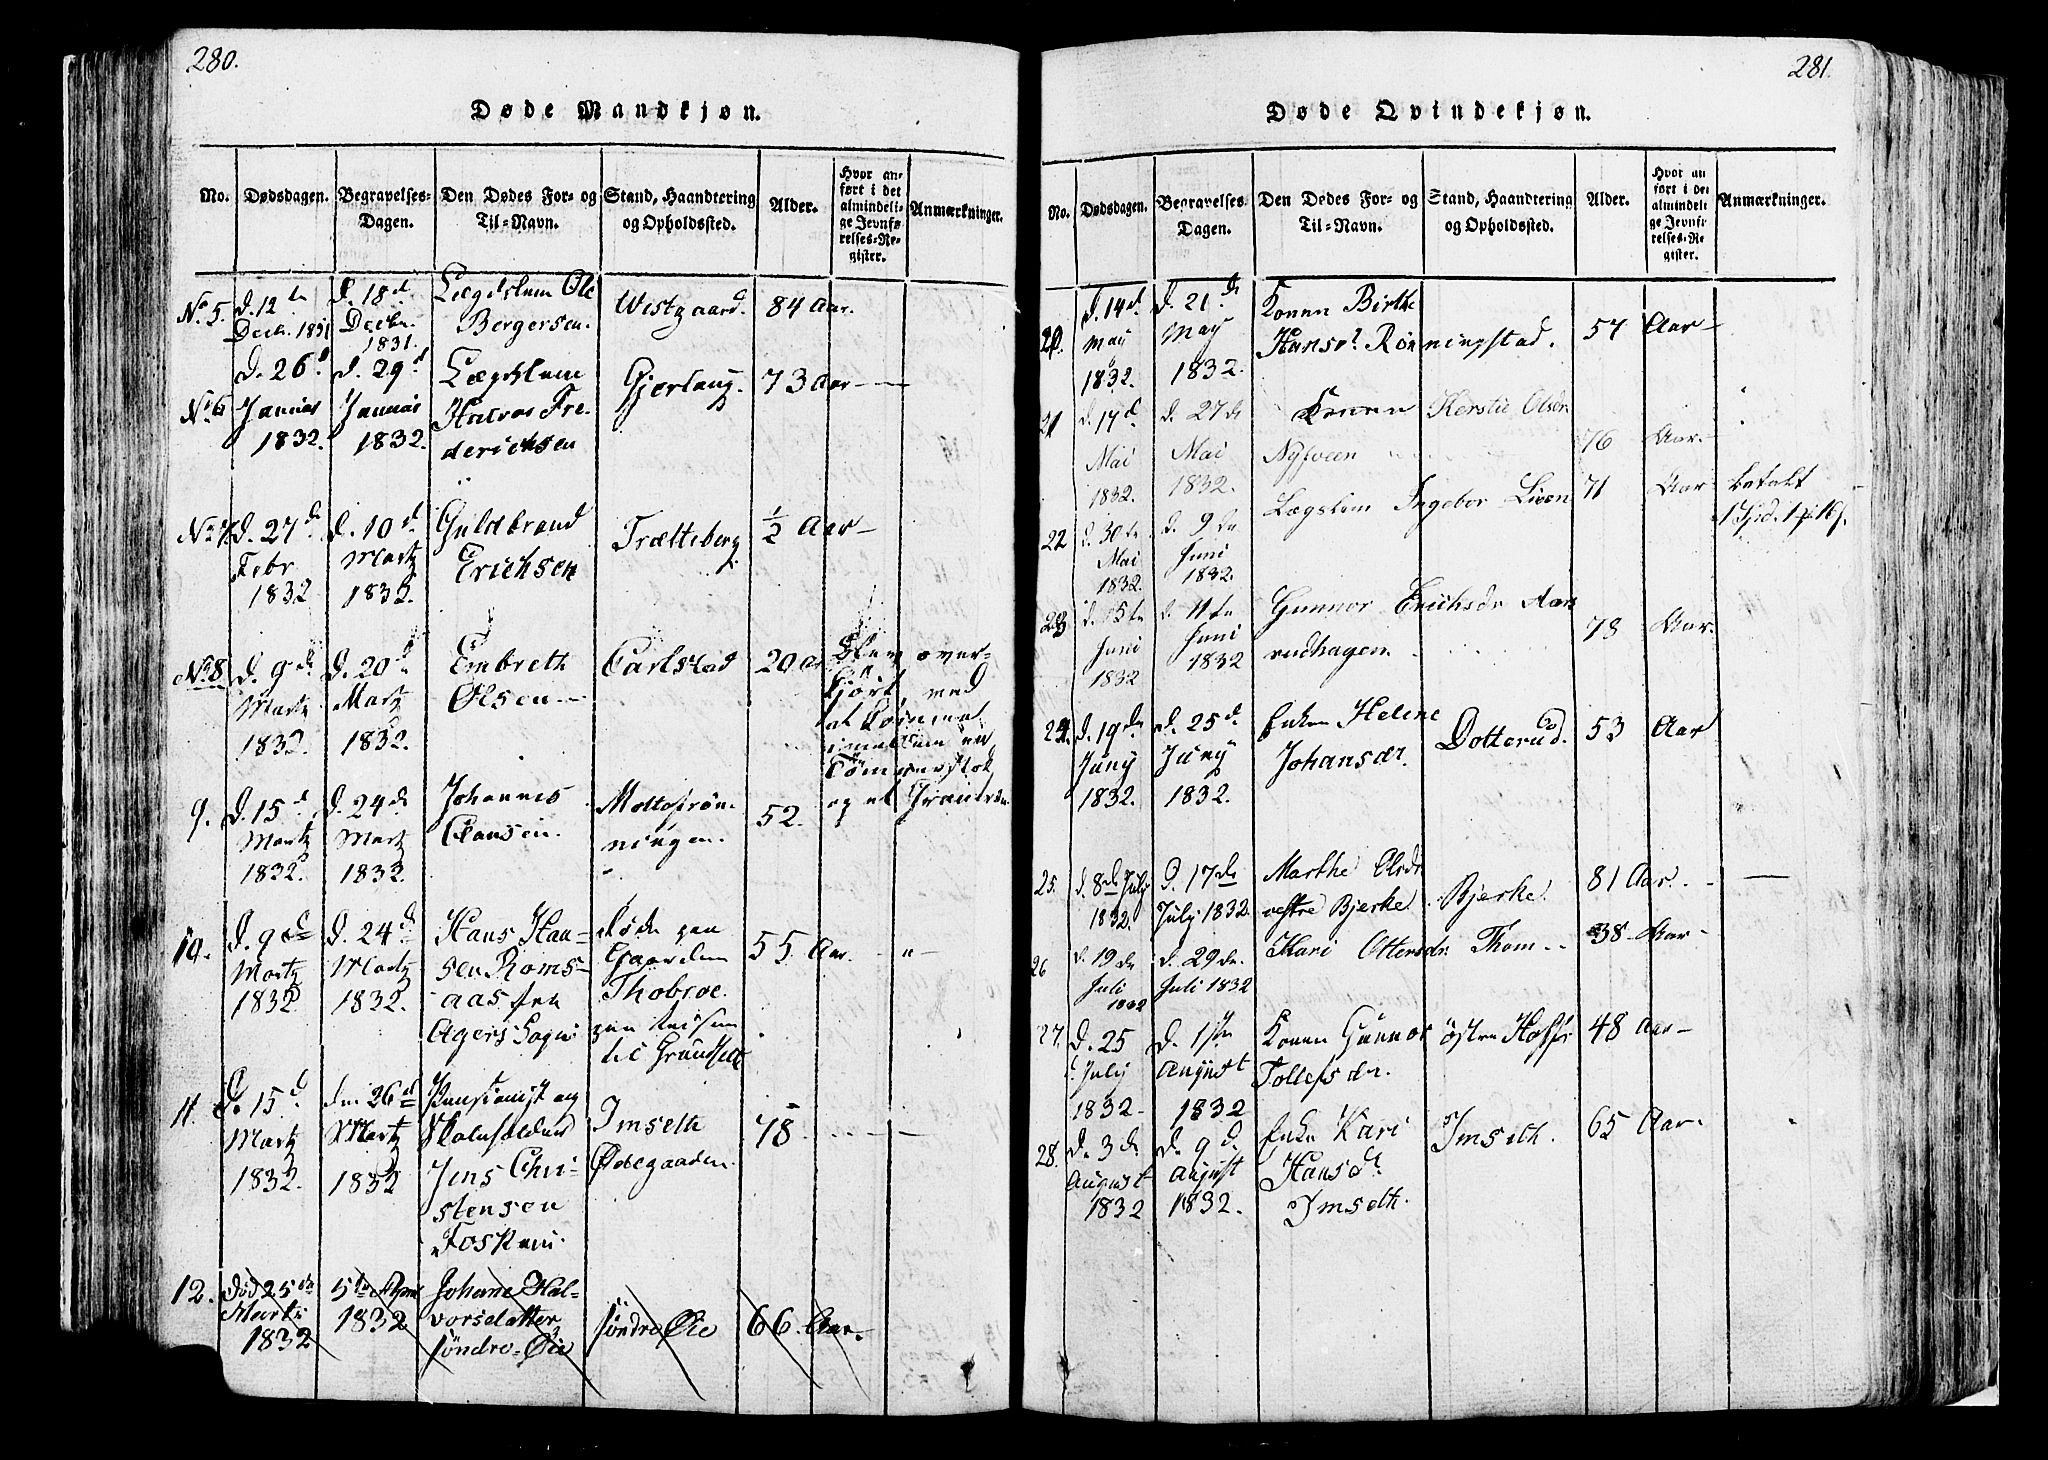 280.
Døde Mandkjøn.
No. Dødsdagen. Begravelses-Dagen. Den Dødes For- og Til-Navn. Stand, Haandtering og Opholdssted. Alder. Hvor anført i det almindelige Jevnførelses-Register. Anmærkninger.
No 5. D. 12te Decbr. 1831 D. 18d. Decbr. 1831. Lægdslem Ole Bergersen. Westgaard. 84 Aar.
No 6 D. 26d Januar 1832. D. 29d Januar 1832. Lægdslem Halvor Frederichsen Gjerlaug. 73 Aar —
No 7. D. 27de Febr 1832 D. 10d. Martz 1832. Guldbrand Erichsen Trætteberg. ½ Aar —
No 8 D. 9de Martz 1832. D. 20d Martz 1832. Embreth Olsen — Carlstad 20 Aar Blev over-
kjørt, med
et
en
Tømmerstok
og et
9. D. 15d Martz 1832. D. 24de Martz 1832. Johannes Clausen. Moltofrønningen. 52.
10. D. 9de Martz 1832 D. 24d. Martz 1832. Hans Hansen Romsaas fra Agers Sogn døde paa Gaarden Thobroe. paa Reisen til Grundsett 55 Aar. - " -
11. D. 15d. Martz 1832. den 26d Martz 1832 Pensionist og Skoleholder Jens Christensen Foskum. Imseth Ødegaarden. 78. —
12. Død 25de Marts 1832 5te April 1832 Johanne Halvorsdatter søndre-Øie søndre Øie 66 Aar.
281.
Døde Qvindekjøn.
No. Dødsdagen. Begravelses-Dagen. Den Dødes For- og Til-Navn. Stand, Haandtering og Opholdssted. Alder. Hvor anført i det almindelige Jevnførelses-Register. Anmærkninger.
20. D. 14d. May 1832. D. 21de May 1832. Konen Birthe Hansdr. Rønningstad. 57 Aar —
21 d. 17d Mai 1832. d. 27de Mai 1832. Konen Kerstie Olsdr Nyfveen 76 Aar. —
22 d. 30te Mai 1832. d. 9de Juni 1832. Lægslem Ingebor Lien 71 Aar betalt
23 d. 5te Juni 1832 d. 11te Juni 1832 Gunnor Erichsdr Aasrudhagen. 73 Aar.
24. D. 19de Juny 1832. D. 25d. Juny 1832. Enken Helene Johansdr. Dotterud. 53 Aar
25. d. 8de July 1832. D. 17de July 1832. Marthe Olsdr vestre Bjerke. Bjerke. 81 Aar. - —
26 d. 19de Juli 1832 d. 29de. Juli 1832 Kari Ottersdr. Thom — 38 Aar —
27. D. 25 July 1832 D. 1ste August 1832 Konen Gunnor Tollefsdr. østre Hoff 48 Aar —
28. D. 3de August 1832 D. 9d. August 1832. Enke Kari Hansdr. Imseth. Imseth. 65 Aar.